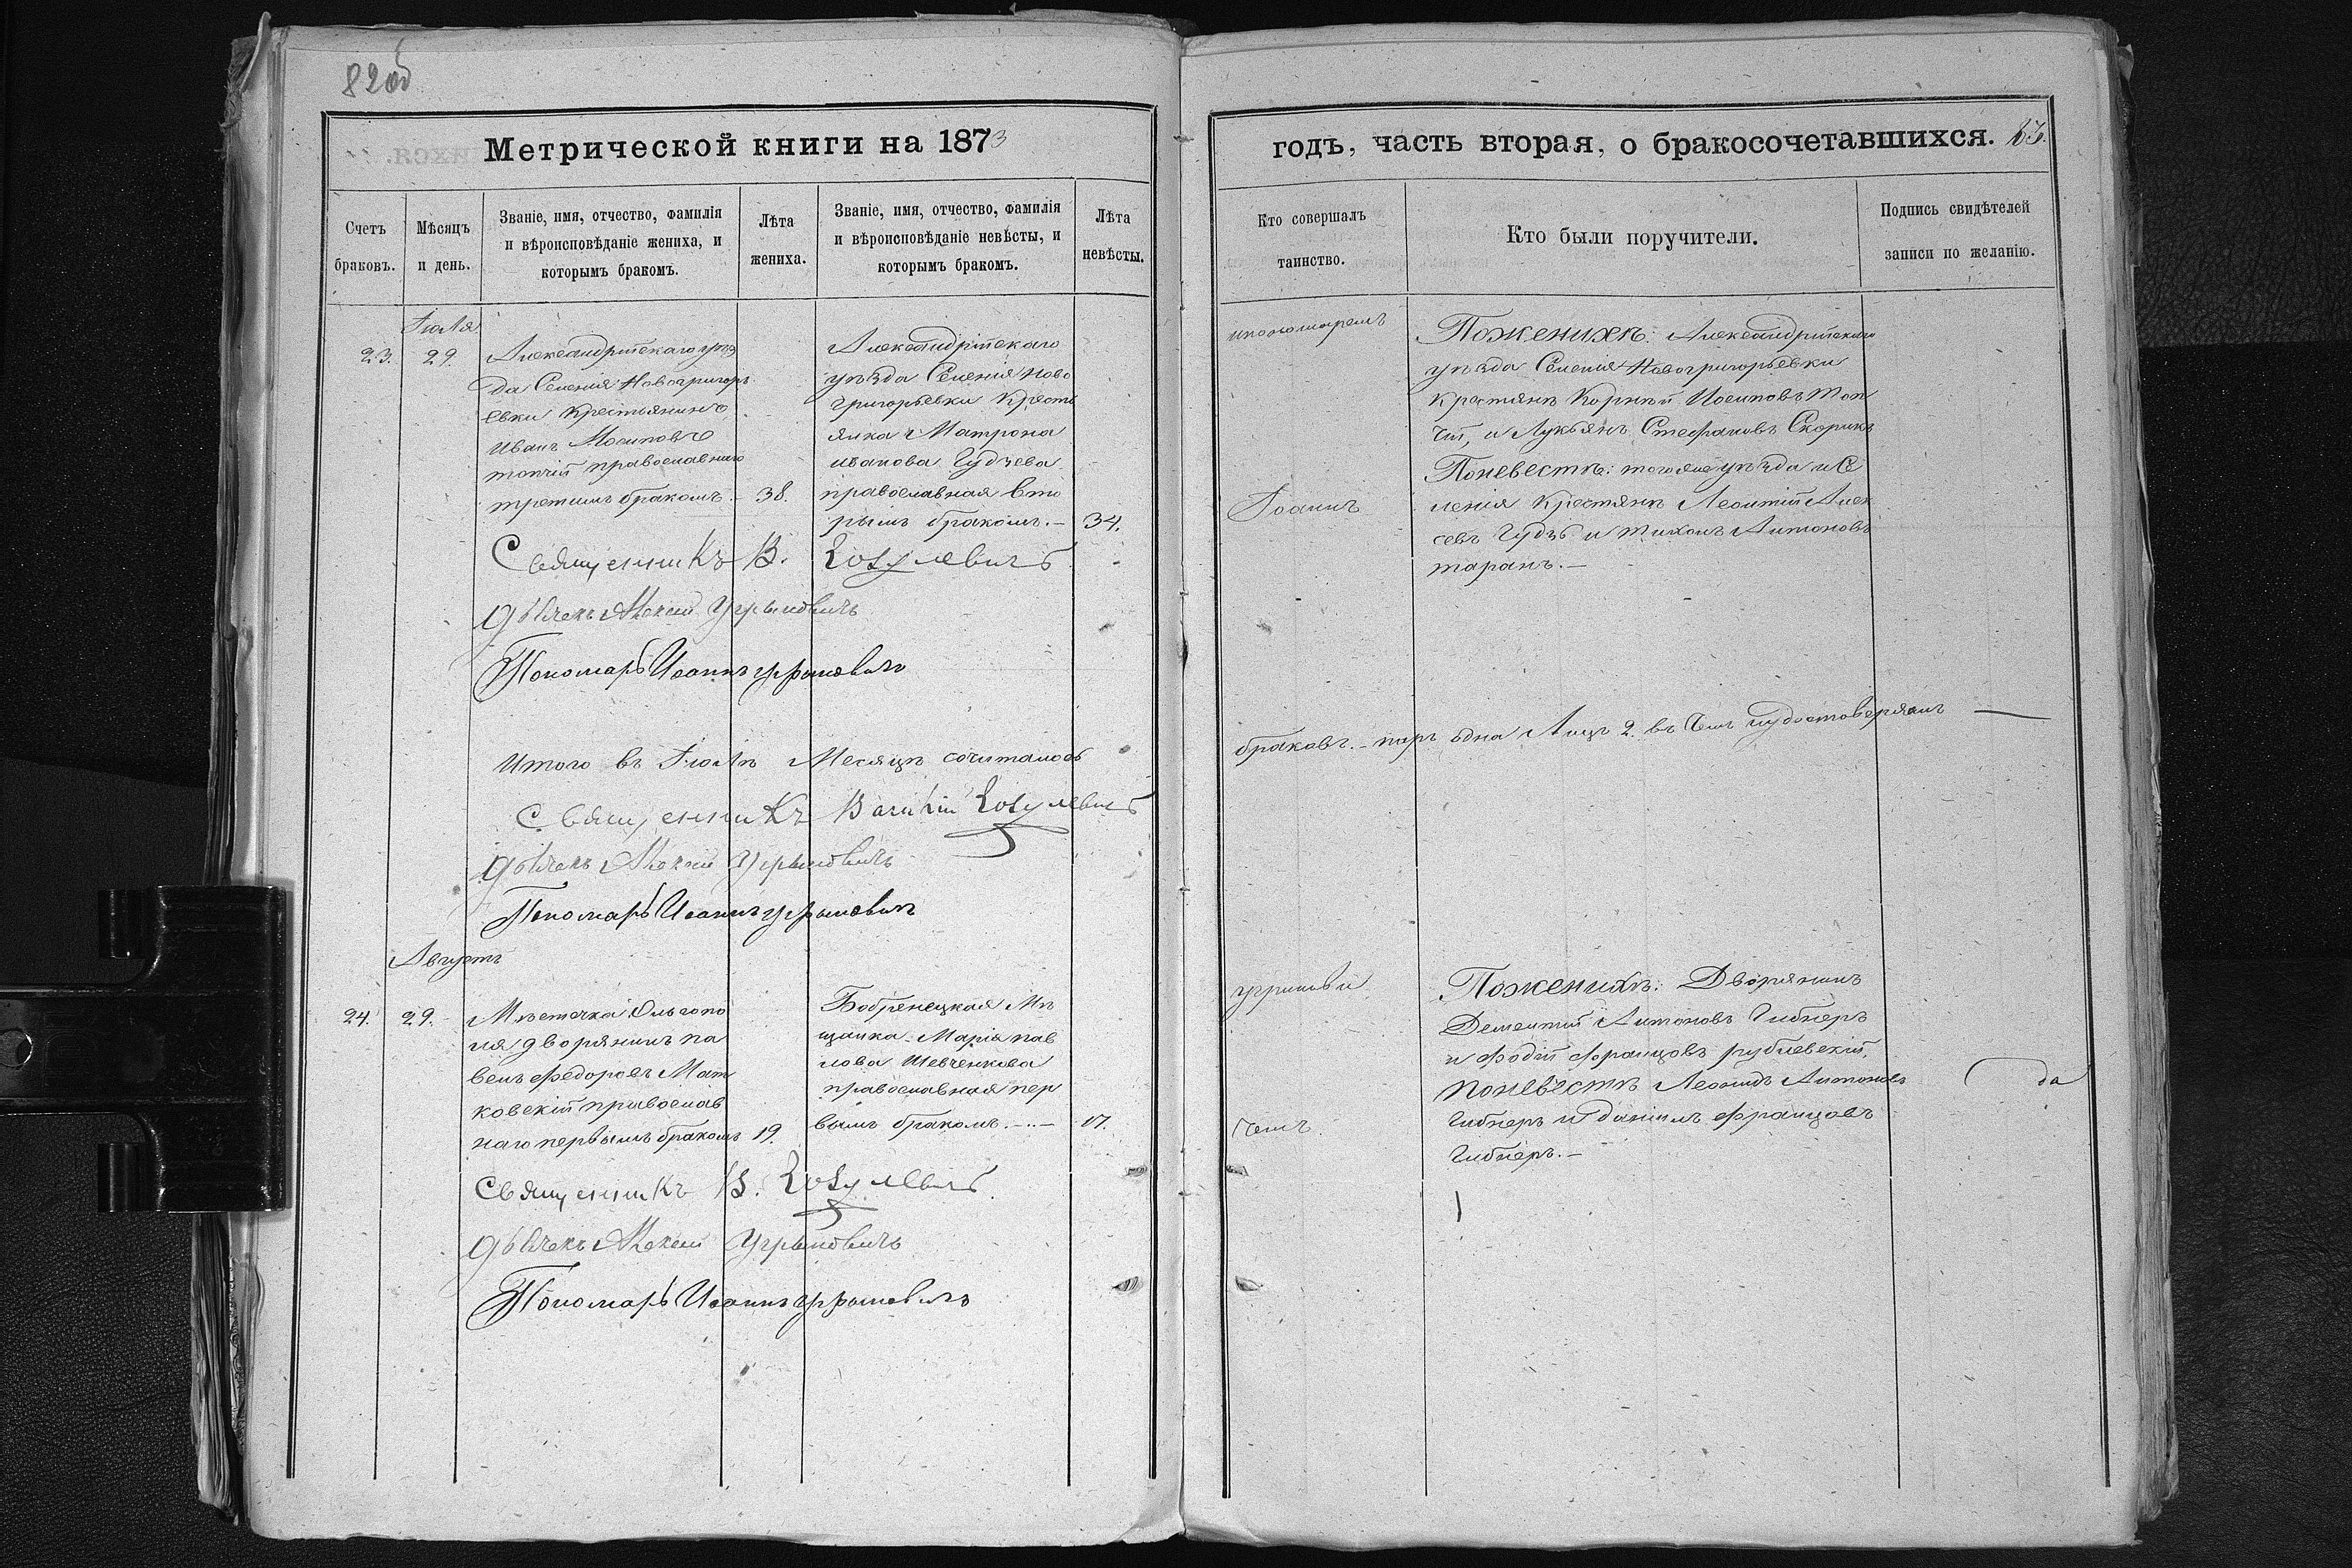 82об
Метрической книги на 1873
Счетъ браковъ.
Мѣсяцъ и день.
Званіе, имя, отчество, фамилія
и вѣроисповѣданіе жениха, и
которымъ бракомъ.
Лѣта жениха.
Званіе, имя, отчество, фамилія
и вѣроисповѣданіе невѣсты, и
которымъ бракомъ.
Лѣта невѣсты.
Іюля
23.
29.
Александрійскаго уѣз
да Селенія Новогригорь
евки Крестьянинъ
Иванъ Іосиповъ
топчій православнаго
третимъ бракомъ.
38.
Александрійскаго
уѣзда Селенія Ново
григорьевки Кресть
янка Матрона
иванова Гудзева
православная вто
рымъ бракомъ.—
34.
Священникъ В. Козулевичъ
Дьячекъ Алексій Угриновичъ
Пономарь Иоаннъ угриновичъ
Итого въ Іюлѣ Месяцѣ сочиталось
Священникъ Василій Козулевичъ
Дьячекъ Алексій Угриновичъ
Пономарь Иоаннъ угриновичъ
Августъ
24.
29.
Мѣстечка Ольгопо
ля дворянинъ па
велъ Федоровъ Мат
ковскій православ
наго первымъ бракомъ
19.
Бобринецкая Мѣ
щанка Марія пав
лова Шевченкова
православная пер
вымъ бракомъ.—
17.
Священникъ В. Козулевичъ
Дьячекъ Алексій Угриновичъ
Пономарь Иоаннъ угриновичъ
годъ, часть вторая, о бракосочетавшихся.
83.
Кто совершалъ
таинство.
Кто были поручители.
Подпись свидѣтелей
записи по желанію.
ипономаремъ
Іоаннъ
Поженихѣ: Александрійскаго
уѣзда Селенія Новогригорьевки
Крестянѣ Корнѣй Иосиповъ Топ
чій, и Лукьянъ Стефановъ Скорикъ
Поневестѣ: того же уѣзда и Се
ленія Крестянѣ Леонтій Алек
сеевъ Гудзь и тихонъ Антоновъ
таранъ.—
браковъ.— паръ одна Лицъ 2. въ Чемъ иудостоверяемъ
угринови
чемъ
Поженихѣ: Дворянинъ
Дементій Антоновъ Гибнеръ
и Фадѣй Францовъ рубчевскій,
поневестѣ Леонидъ Антоновъ
Гибнеръ и данiилъ Францовъ
Гибнеръ.—
да